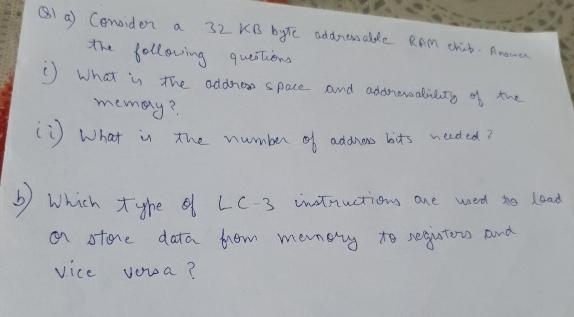 Q1 a) Consider a 32 KB byte addressable RAM chip. Answer
the following questions
i) What is the address space and addressability of the
memory?
ii) What is the number of address bits needed?
b) Which type of LC-3 instructions are used to load
or store data from memory to registers and
vice versa?